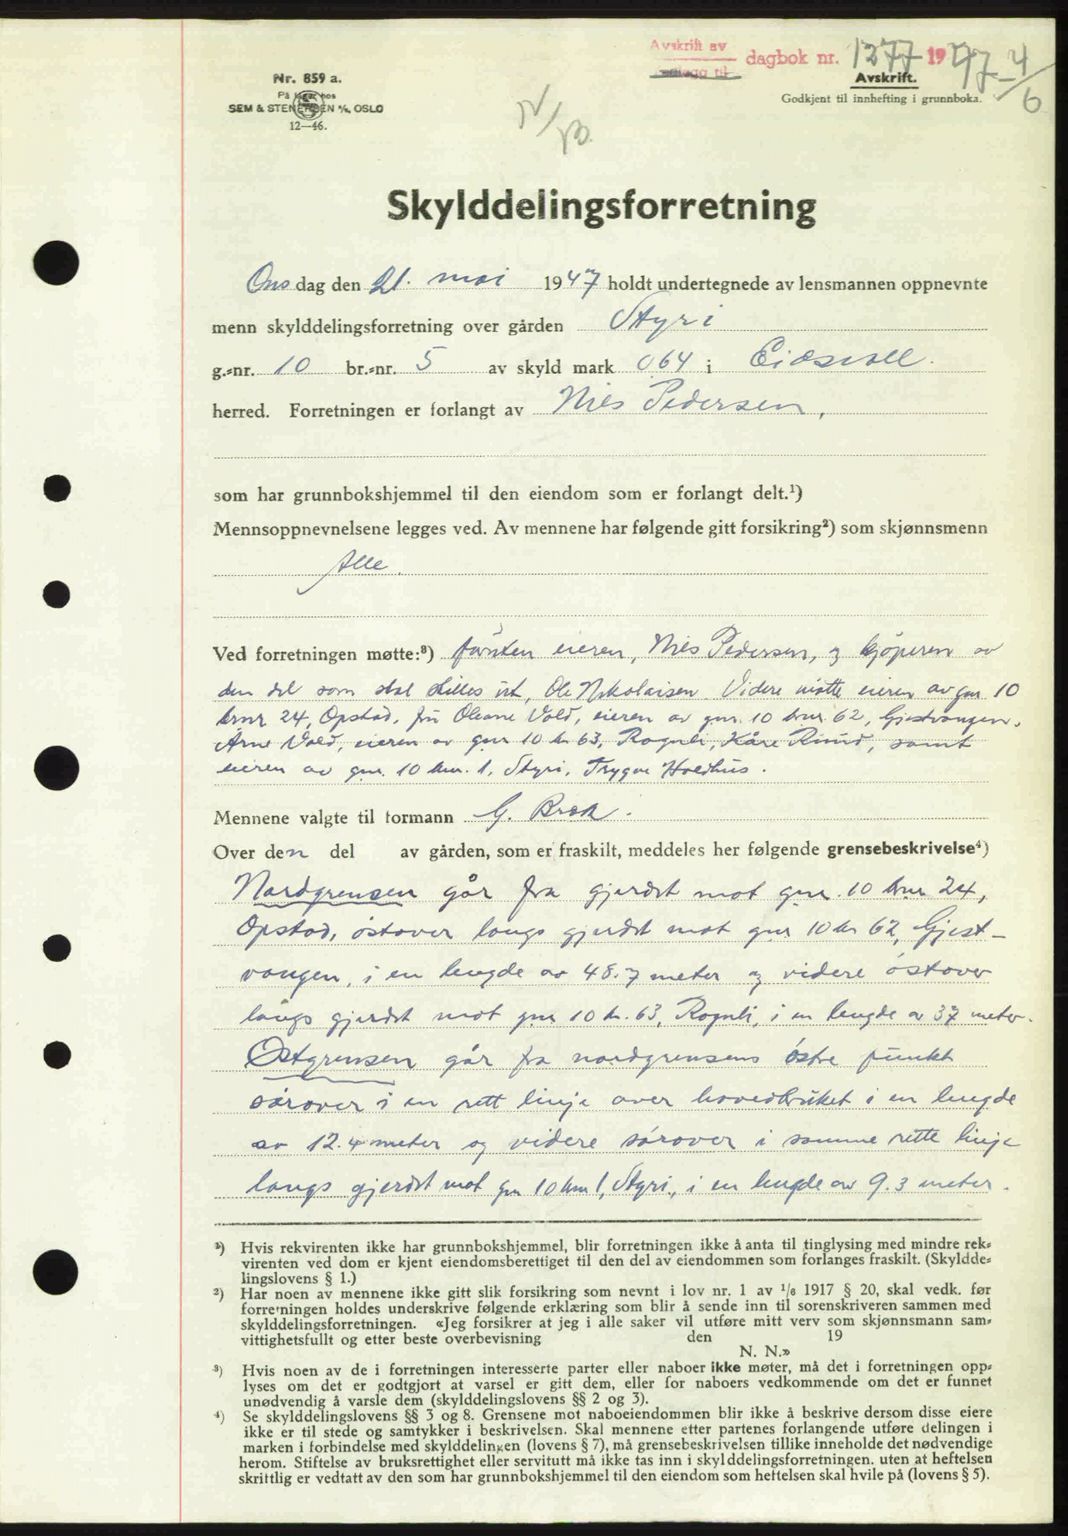 Avskrift av
dagbok nr. 1377 1947-4/6
Avskrift.
Godkjent til innhefting i grunnboka.
Nr. 859 a.
På lager hos
SEM & STENERSEN A/S, OSLO
12—46.
Skylddelingsforretning
Onsdag den 21. mai 1947 holdt undertegnede av lensmannen oppnevnte
menn skylddelingsforretning over gården Styri
g.-nr. 10 br.-nr. 5 av skyld mark 0,64 i Eidsvoll.
herred. Forretningen er forlangt av Nils Pedersen,
som har grunnbokshjemmel til den eiendom som er forlangt delt.¹)
Mennsoppnevnelsene legges ved. Av mennene har følgende gitt forsikring²) som skjønnsmenn
Alle.
Ved forretningen møtte:³) foruten eieren, Nils Pedersen, og kjøperen av
den del som skal skilles ut, Ole Nikolaisen. Videre møtte eieren av gnr 10
brnr 24, Opstad, fru Oleane Vold, eieren av gnr. 10 brnr. 62, Gjestvangen,
Arne Vold, eieren av gnr 10 bn 63, Rognli, Kåre Rund, samt
eieren av gnr. 10 bnr. 1, Styri, Trygve Holdhus.
Mennene valgte til formann G. Bræk.
Over den del av gården, som er fraskilt, meddeles her følgende grensebeskrivelse⁴)
Nordgrensen går fra gjerdet mot gnr. 10 bnr 24,
Opstad, østover langs gjerdet mot gnr 10 bn 62, Gjest-
vangen, i en lengde av 48.7 meter og videre østover
langs gjerdet mot gnr 10 bn. 63, Rognli, i en lengde av 37 meter.
Østgrensen går fra nordgrensens østre punkt
sørover i en rett linje over hovedbruket i en lengde
av 12.4 meter og videre sørover i samme rette linje
langs gjerdet mot gnr 10 bnr 1, Styri, i en lengde av 9.3 meter.
¹) Hvis rekvirenten ikke har grunnbokshjemmel, blir forretningen ikke å anta til tinglysing med mindre rek-
virenten ved dom er kjent eiendomsberettiget til den del av eiendommen som forlanges fraskilt. (Skyldde-
lingslovens § 1.)
²) Har noen av mennene ikke gitt slik forsikring som nevnt i lov nr. 1 av 1/8 1917 § 20, skal vedk. før
forretningen holdes underskrive følgende erklæring som blir å sende inn til sorenskriveren sammen med
skylddelingsforretningen. «Jeg forsikrer at jeg i alle saker vil utføre mitt verv som skjønnsmann sam-
vittighetsfullt og etter beste overbevisning den 19
N. N.»
³) Hvis noen av de i forretningen interesserte parter eller naboer ikke møter, må det i forretningen opp-
lyses om det er godtgjort at varsel er gitt dem, eller for naboers vedkommende om det er funnet
unødvendig å varsle dem (skylddelingslovens §§ 2 og 3).
⁴) Se skylddelingslovens §§ 3 og 8. Grensene mot naboeiendommen blir ikke å beskrive dersom disse eiere
ikke er til stede og samtykker i beskrivelsen. Skal mennene etter partenes forlangende utføre delingen i
marken i forbindelse med skylddelingen (lovens § 7), må grensebeskrivelsen tillike inneholde det nødvendige
herom. Stiftelse av bruksrettighet eller servitutt må ikke tas inn i skylddelingsforretningen. uten at heftelsen
skrittlig er vedtatt av den som har grunnbokshjemmel til den eiendom som heftelsen skal hvile på (lovens § 5).